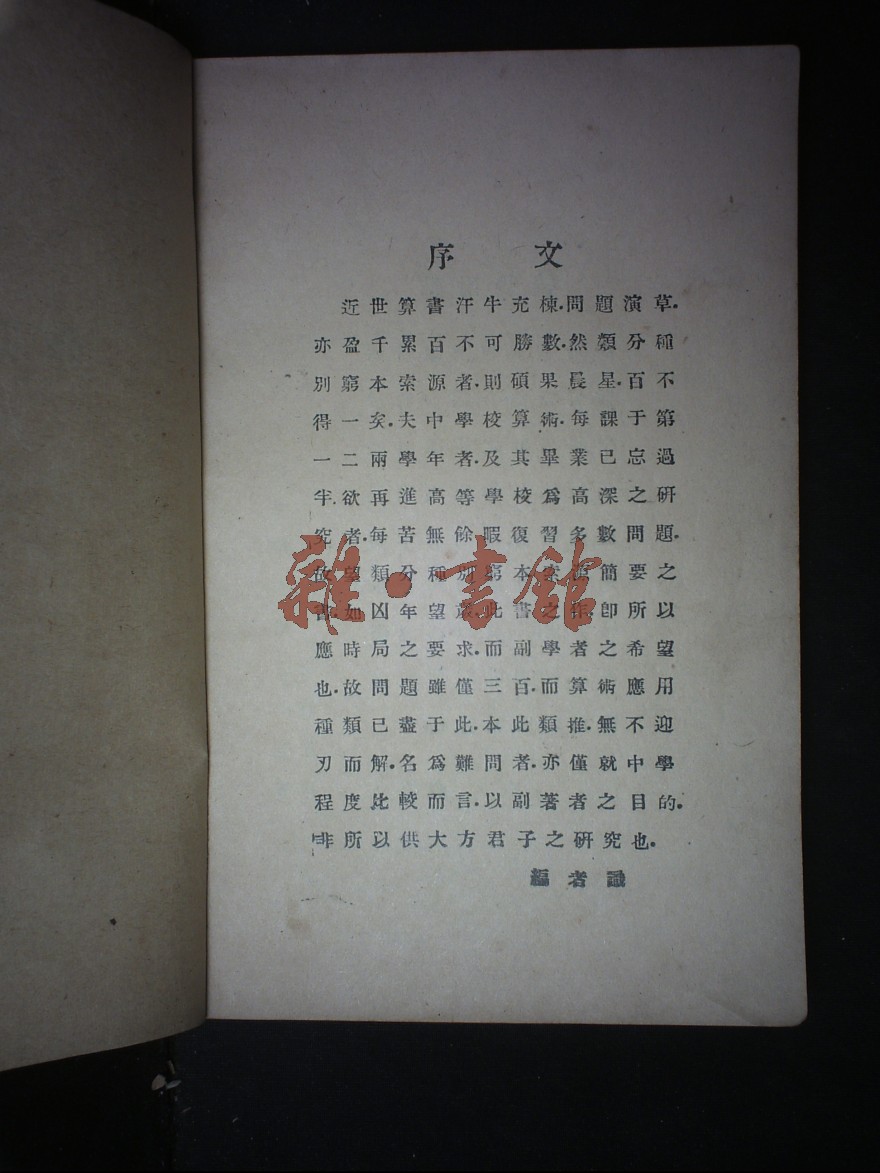 序文
近世算書汗牛充棟.問題演草.
亦盈千累百不可勝數.然類分種
別窮本索源者.則碩果晨星.百不
得一矣.夫中學校算術.每課于第
一二兩學年者.及其畢業已忘過
半.欲再進高等學校爲高深之研
究者.每苦無餘暇復習多數問題.
故望類分種別窮本索源簡要之
書.如凶年望歲.此書之作.卽所以
應時局之要求.而副學者之希望
也.故問題雖僅三百.而算術應用
種類已盡于此.本此類推.無不迎
刃而解.名爲難問者.亦僅就中學
程度比較而言.以副著者之目的.
非所以供大方君子之硏究也.
編者識
雜·書館